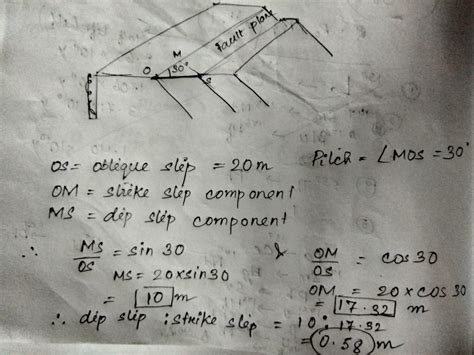 Fault plane
M
O 30° S
OS = oblique slip = 20m
Pitch = ∠MOS = 30°
OM = strike slip component
MS = dip slip component
∴ MS/OS = sin 30 & OM/OS = cos 30
MS = 20 x sin 30
OM = 20 x cos 30
= 10 m
= 17.32 m
∴ dip slip : strike slip = 10 : 17.32
= 0.58 m